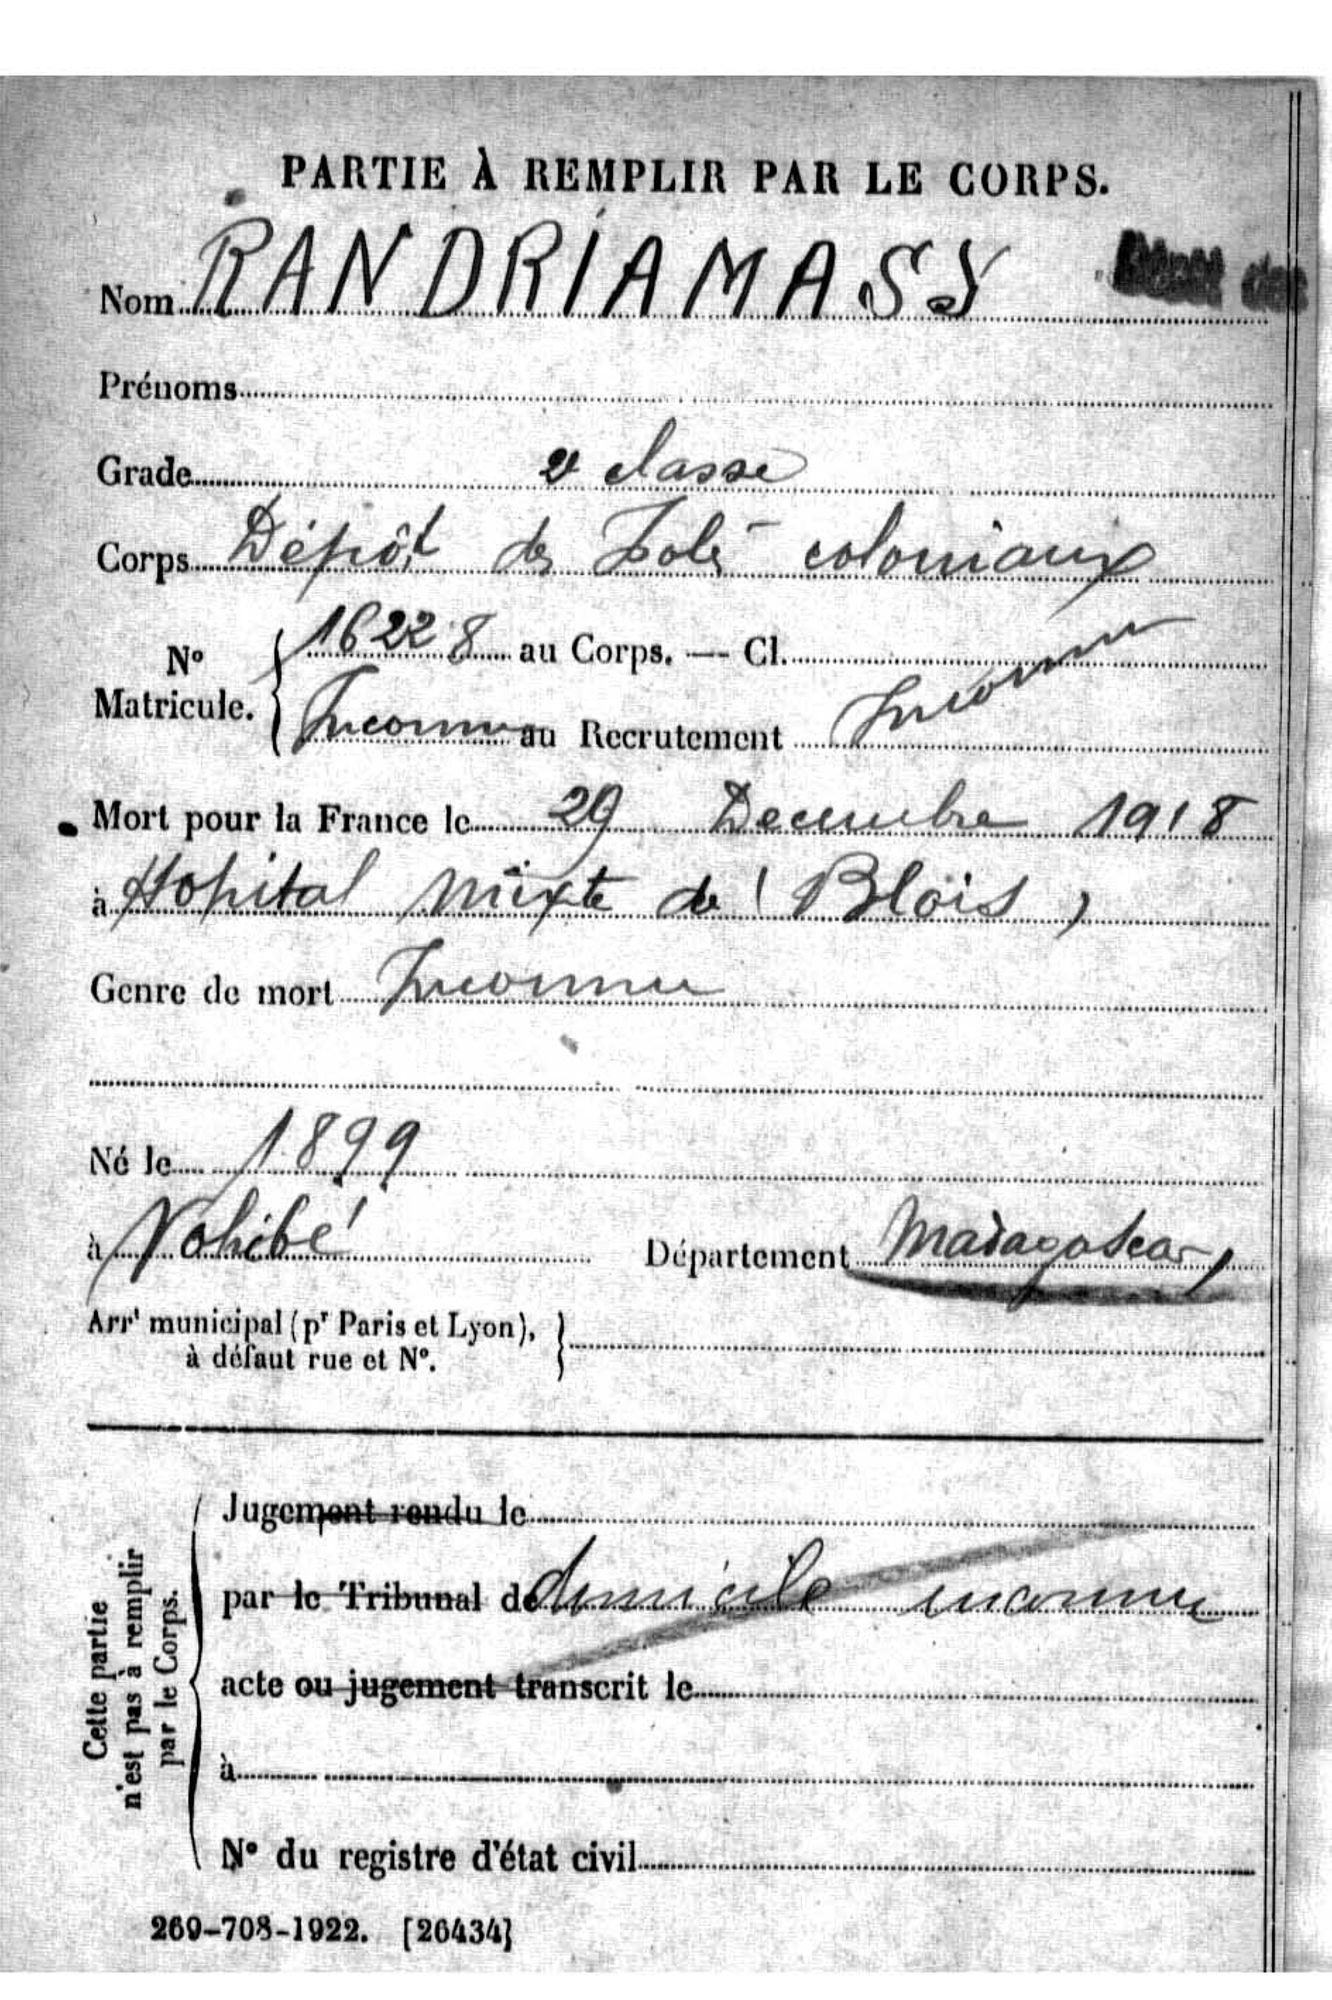 PARTIE À REMPLIR PAR LE CORPS.
Nom RANDRIAMASY
Dépôt des
Prénoms
Grade 2e classe
Corps Dépôt des Isolés coloniaux
N° Matricule. 16228 au Corps. — Cl. Inconnu
Inconnu au Recrutement
Mort pour la France le 29 Decembre 1918
à Hopital Mixte de (Blois)
Genre de mort Inconnu
Né le 1899
à Vohibé Département Madagascar
Arrt municipal (pr Paris et Lyon),
à défaut rue et N°.
Cette partie
n'est pas à remplir
par le Corps.
Jugement rendu le
par le Tribunal de domicile inconnu
acte ou jugement transcrit le
à
N° du registre d'état civil
269-708-1922. [26434]